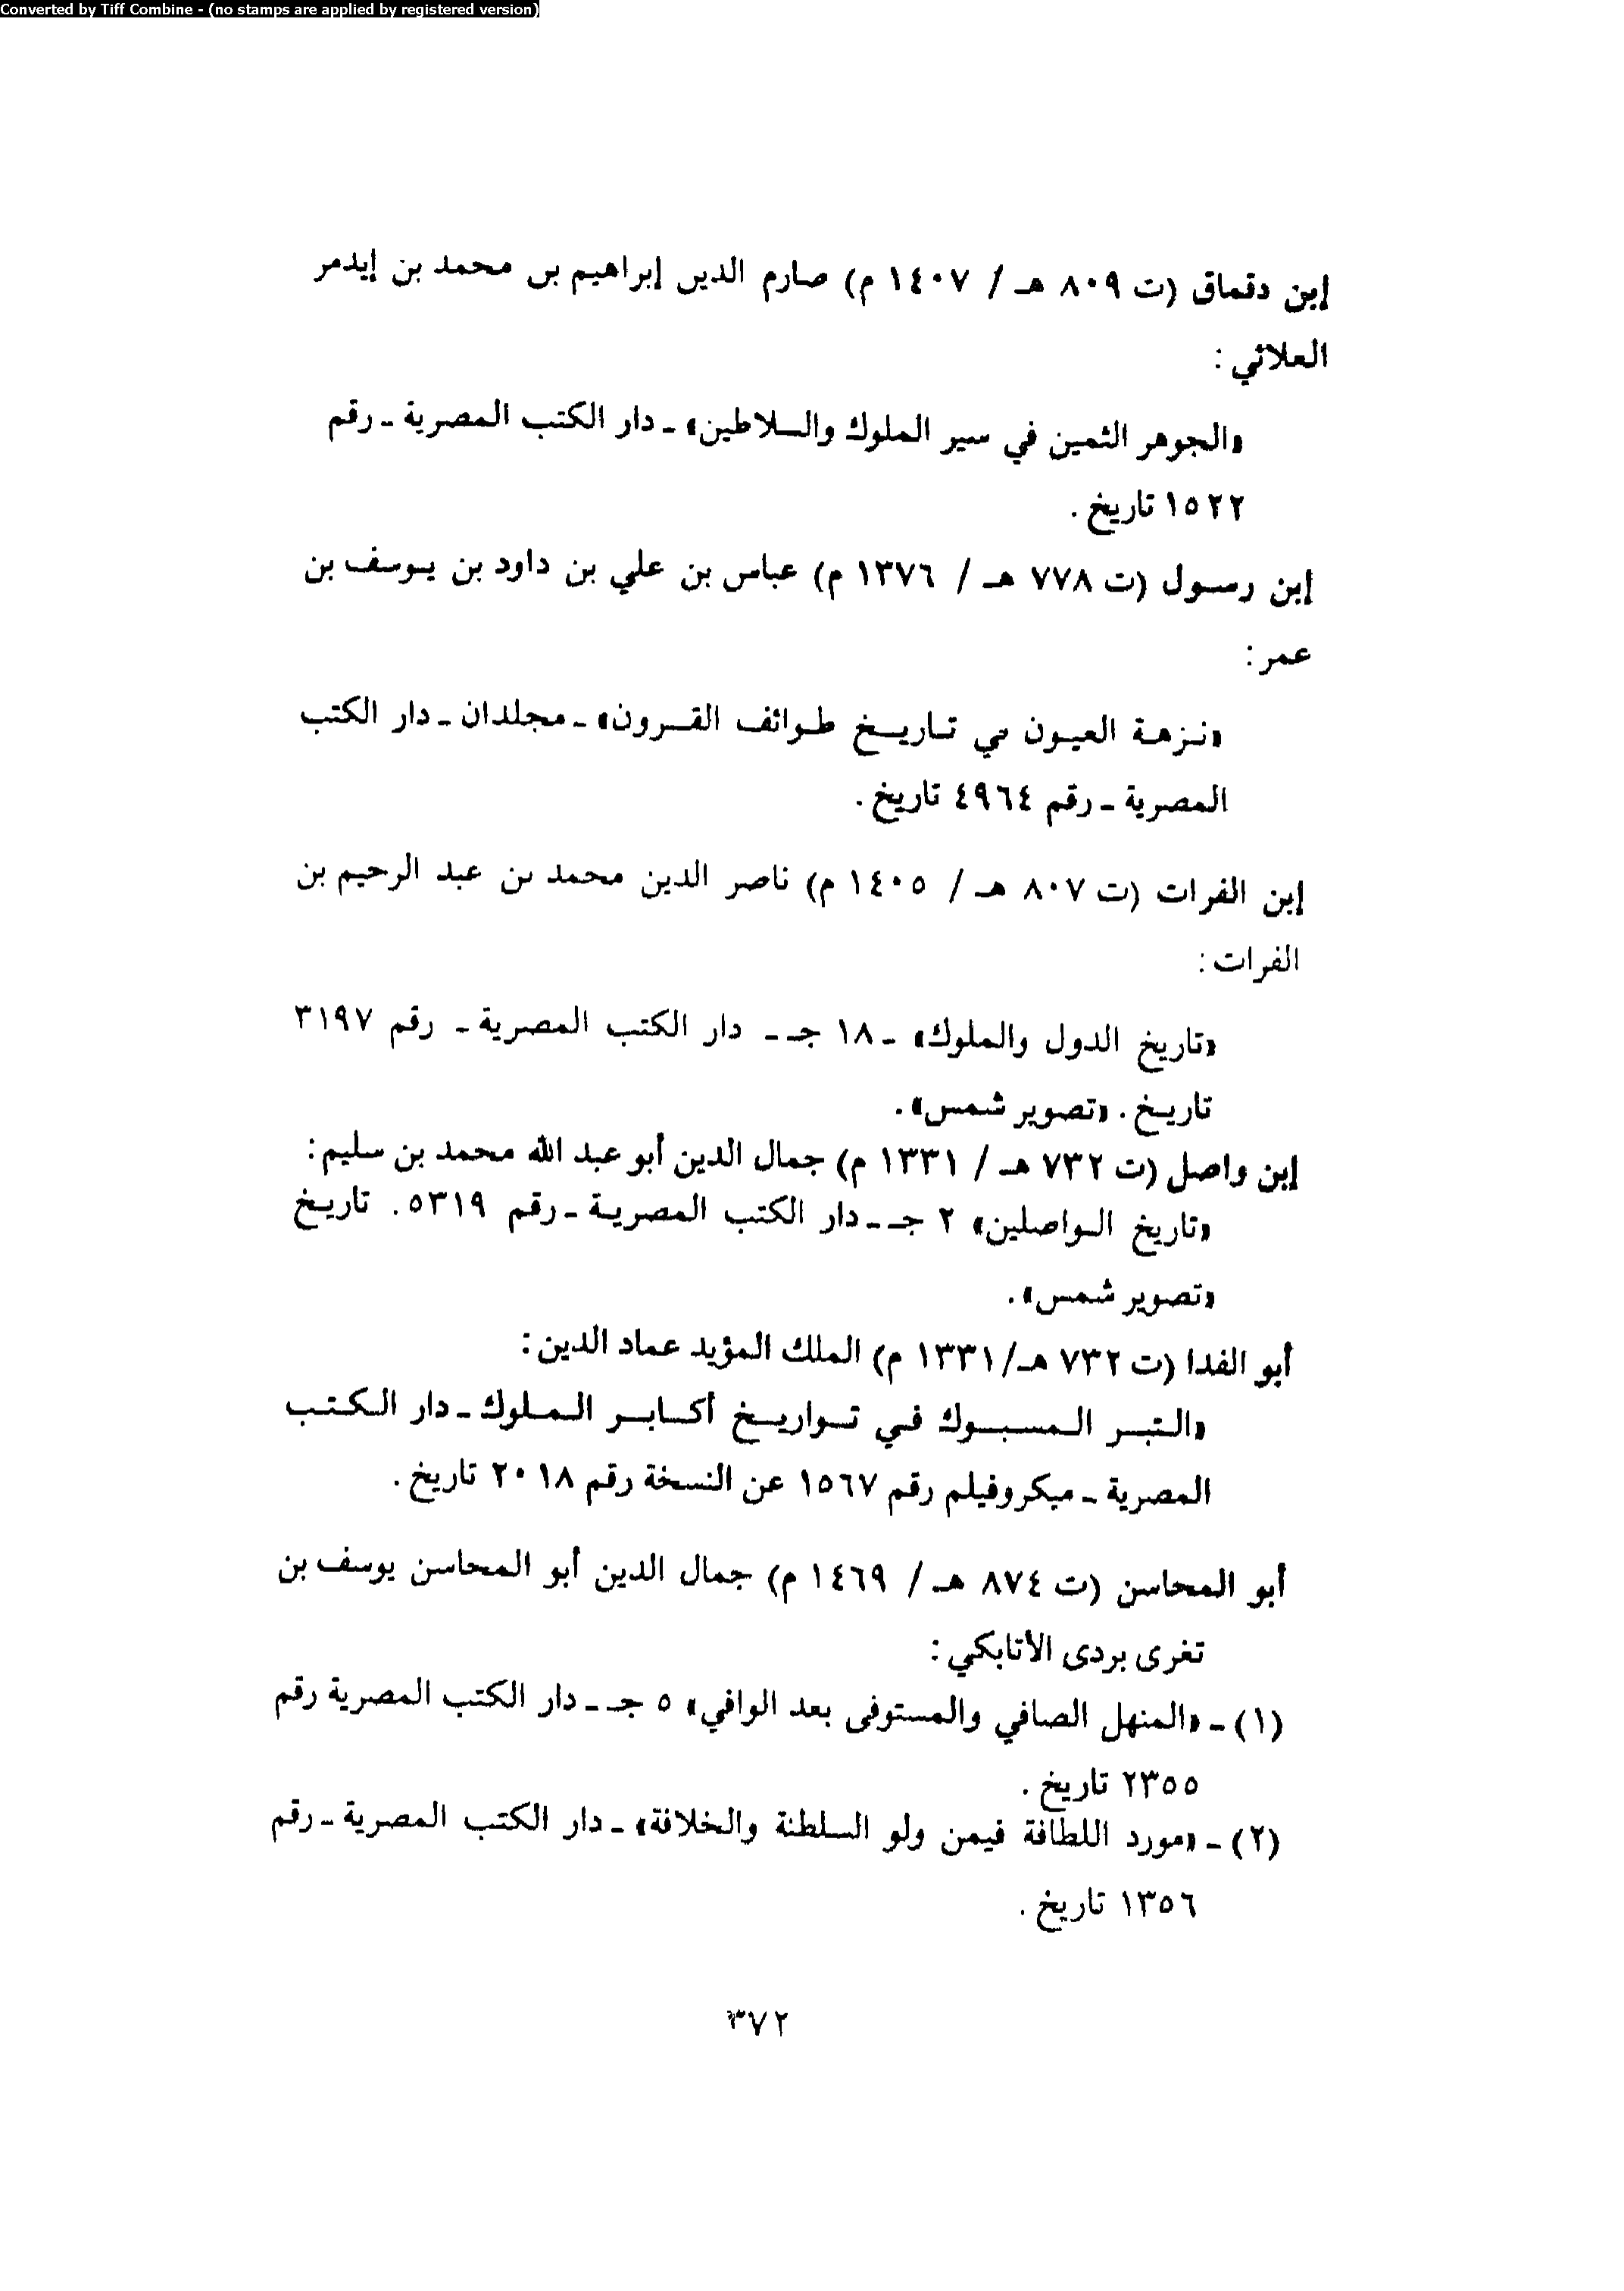 Converted by Tiff Combine - (no stamps are applied by registered version)
إبن دقماق (ت ٨٠٩ هـ / ١٤٠٧ م) صارم الدين إبراهيم بن محمد بن إيدمر
العلائي :
«الجوهر الثمين في سير الملوك والسلاطين» ـ دار الكتب المصرية ـ رقم
١٥٢٢ تاريخ .
إبن رسول (ت ٧٧٨ هـ / ١٣٧٦ م) عباس بن علي بن داود بن يوسف بن
عمر :
«نزهة العيون في تاريخ طوائف القرون» ـ مجلدان ـ دار الكتب
المصرية ـ رقم ٤٩٦٤ تاريخ .
إبن الفرات (ت ٨٠٧ هـ / ١٤٠٥ م) ناصر الدين محمد بن عبد الرحيم بن
الفرات :
«تاريخ الدول والملوك» ـ ١٨ جـ ـ دار الكتب المصرية ـ رقم ٣١٩٧
تاريخ . «تصوير شمس» .
إبن واصل (ت ٧٣٢ هـ / ١٣٣١ م) جمال الدين أبو عبد الله محمد بن سليم :
«تاريخ الواصلين» ٢ جـ ـ دار الكتب المصرية ـ رقم ٥٣١٩ . تاريخ
«تصوير شمس» .
أبو الفدا (ت ٧٣٢ هـ/١٣٣١ م) الملك المؤيد عماد الدين :
«التبر المسبوك في تواريخ أكابر الملوك ـ دار الكتب
المصرية ـ ميكروفيلم رقم ١٥٦٧ عن النسخة رقم ٢٠١٨ تاريخ .
أبو المحاسن (ت ٨٧٤ هـ / ١٤٦٩ م) جمال الدين أبو المحاسن يوسف بن
تغرى بردى الأتابكي :
(١) ـ «المنهل الصافي والمستوفى بعد الوافي» ٥ جـ ـ دار الكتب المصرية رقم
٢٣٥٥ تاريخ .
(٢) ـ «مورد اللطافة فيمن ولو السلطنة والخلافة» ـ دار الكتب المصرية ـ رقم
١٣٥٦ تاريخ .
٣٧٢